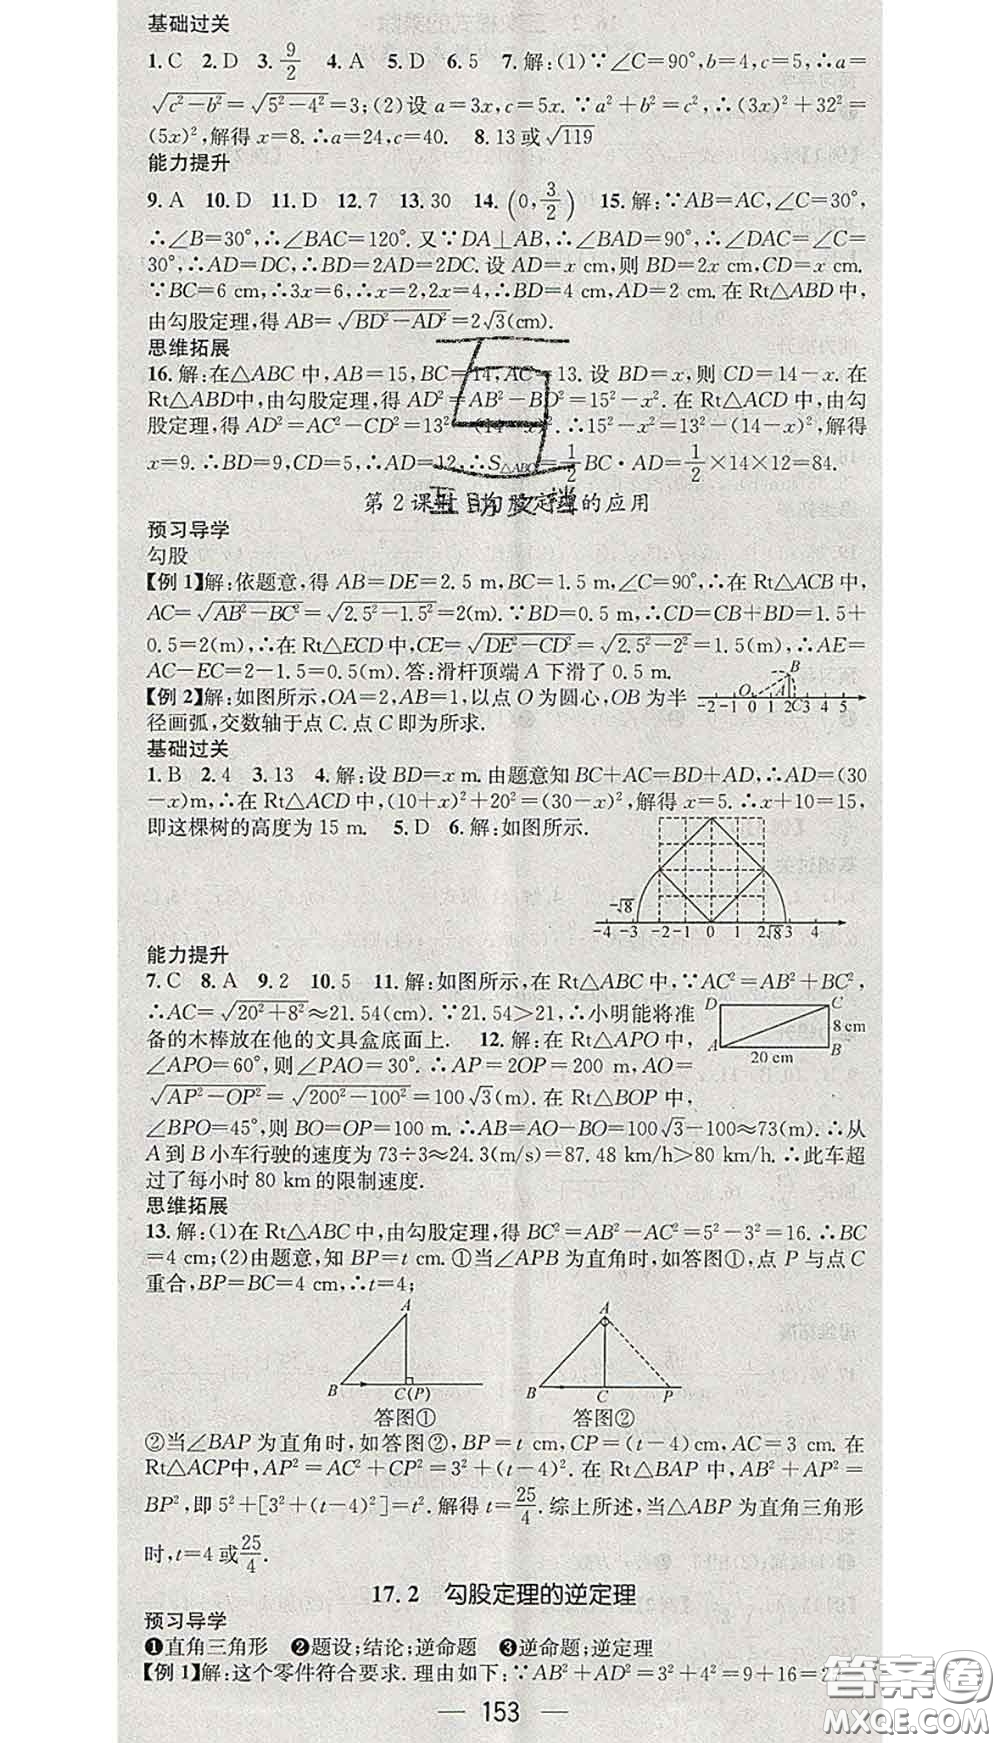 基础过关
1.C 2.D 3.9/2 4.A 5.D 6.5 7.解:(1)∵∠C=90°,b=4,c=5,∴a=
√(c²-b²)=√(5²-4²)=3;(2)设a=3x,c=5x.∵a²+b²=c²,∴(3x)²+32²=
(5x)²,解得x=8.∴a=24,c=40. 8.13或√119
能力提升
9.A 10.D 11.D 12.7 13.30 14.(0,3/2) 15.解:∵AB=AC,∠C=30°,
∴∠B=30°,∴∠BAC=120°.又∵DA⊥AB,∴∠BAD=90°,∴∠DAC=∠C=
30°,∴AD=DC,∴BD=2AD=2DC.设AD=x cm,则BD=2x cm,CD=x cm.
∵BC=6 cm,∴3x=6,∴x=2,2x=4,∴BD=4 cm,AD=2 cm.在Rt△ABD中,
由勾股定理,得AB=√(BD²-AD²)=2√3(cm).
思维拓展
16.解:在△ABC中,AB=15,BC=14,AC=13.设BD=x,则CD=14-x.在
Rt△ABD中,由勾股定理,得AD²=AB²-BD²=15²-x².在Rt△ACD中,由勾
股定理,得AD²=AC²-CD²=13²-(14-x)².∴15²-x²=13²-(14-x)²,解得
x=9.∴BD=9,CD=5,∴AD=12.∴S△ABC=1/2BC·AD=1/2×14×12=84.
第2课时 勾股定理的应用
预习导学
勾股
【例1】解:依题意,得AB=DE=2.5 m,BC=1.5 m,∠C=90°,∴在Rt△ACB中,
AC=√(AB²-BC²)=√(2.5²-1.5²)=2(m).∵BD=0.5 m,∴CD=CB+BD=1.5+
0.5=2(m),∴在Rt△ECD中,CE=√(DE²-CD²)=√(2.5²-2²)=1.5(m),∴AE=
AC-EC=2-1.5=0.5(m).答:滑杆顶端A下滑了0.5 m.
【例2】解:如图所示,OA=2,AB=1,以点O为圆心,OB为半
径画弧,交数轴于点C.点C即为所求.
B
O A
-2 -1 0 1 2C3 4 5
基础过关
1.B 2.4 3.13 4.解:设BD=x m.由题意知BC+AC=BD+AD,∴AD=(30
-x)m,∴在Rt△ACD中,(10+x)²+20²=(30-x)²,解得x=5.∴x+10=15,
即这棵树的高度为15 m. 5.D 6.解:如图所示.
-√8
-4 -3 -2 -1 0 1 2√8 3 4
能力提升
7.C 8.A 9.2 10.5 11.解:如图所示,在Rt△ABC中,∵AC²=AB²+BC²,
∴AC=√(20²+8²)≈21.54(cm).∵21.54>21,∴小明能将准
备的木棒放在他的文具盒底面上. 12.解:在Rt△APO中,
∠APO=60°,则∠PAO=30°.∴AP=2OP=200 m,AO=
√(AP²-OP²)=√(200²-100²)=100√3(m).在Rt△BOP中,
D C
8 cm
A B
20 cm
∠BPO=45°,则BO=OP=100 m.∴AB=AO-BO=100√3-100≈73(m).∴从
A到B小车行驶的速度为73÷3≈24.3(m/s)=87.48 km/h>80 km/h.∴此车超
过了每小时80 km的限制速度.
思维拓展
13.解:(1)在Rt△ABC中,由勾股定理,得BC²=AB²-AC²=5²-3²=16.∴BC
=4 cm;(2)由题意,知BP=t cm.①当∠APB为直角时,如答图①,点P与点C
重合,BP=BC=4 cm,∴t=4;
A
B C(P)
答图①
A
B C P
答图②
②当∠BAP为直角时,如答图②,BP=t cm,CP=(t-4)cm,AC=3 cm.在
Rt△ACP中,AP²=AC²+CP²=3²+(t-4)².在Rt△BAP中,AB²+AP²=
BP²,即5²+[3²+(t-4)²]=t².解得t=25/4.综上所述,当△ABP为直角三角形
时,t=4或25/4.
17.2 勾股定理的逆定理
预习导学
❶直角三角形 ❷题设;结论;逆命题 ❸逆命题;逆定理
【例1】解:这个零件符合要求.理由如下:∵AB²+AD²=3²+4²=9+16=2
— 153 —
答案圈
MXQE.COM